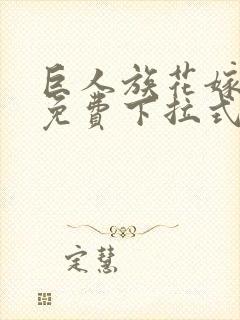 巨人族花嫁
免費下拉式
定慧